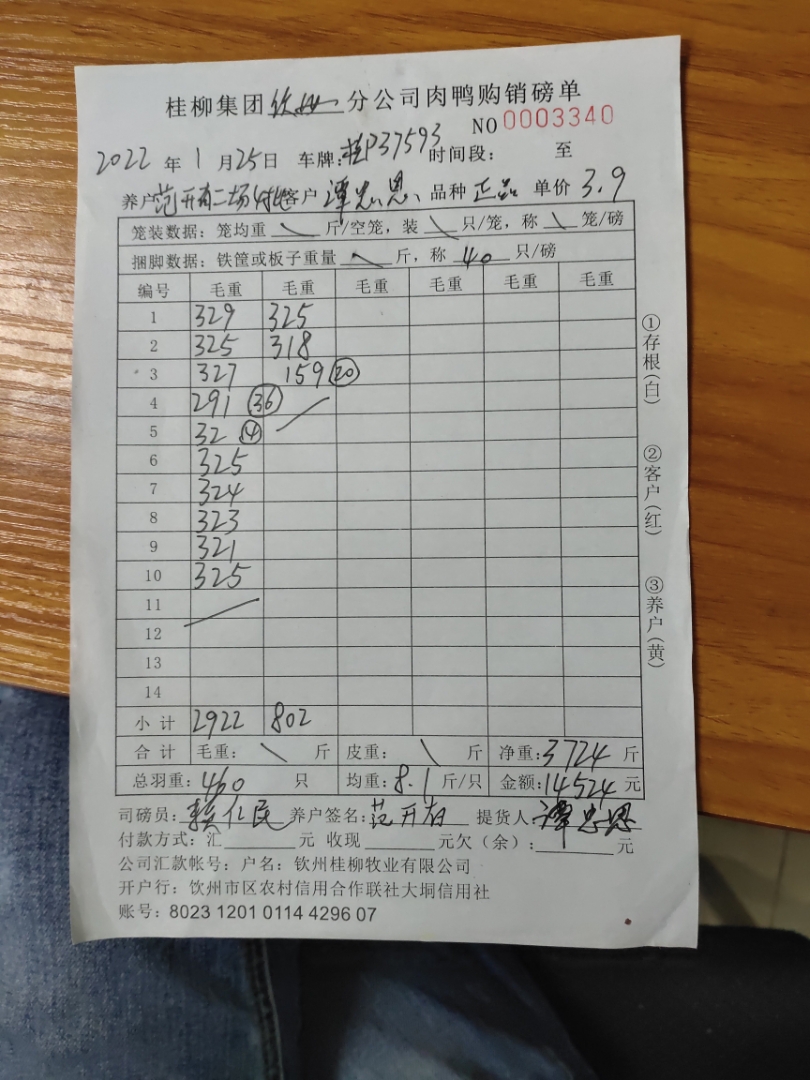 桂柳集团钦州分公司肉鸭购销磅单
NO 0003340
2022年1月25日 车牌:桂P37593 时间段: 至
养户范开有二场 客户谭忠恩 品种正品 单价3.9
笼装数据:笼均重\斤/空笼,装\只/笼,称\笼/磅
捆脚数据:铁筐或板子重量\斤,称40只/磅
编号 毛重 毛重 毛重 毛重 毛重 毛重
1 329 325
2 325 318
3 327 159 ⑳
4 291 ㊱
5 32 ④
6 325
7 324
8 323
9 321
10 325
11
12
13
14
小计 2922 802
合计 毛重:\斤 皮重:\斤 净重:3724斤
总羽重:460只 均重:8.1斤/只 金额:14524元
司磅员:赖仁民 养户签名:范开有 提货人:谭忠恩
付款方式:汇______元 收现______元欠(余):______元
公司汇款帐号:户名:钦州桂柳牧业有限公司
开户行:钦州市区农村信用合作联社大垌信用社
账号:8023 1201 0114 4296 07
①存根(白)
②客户(红)
③养户(黄)